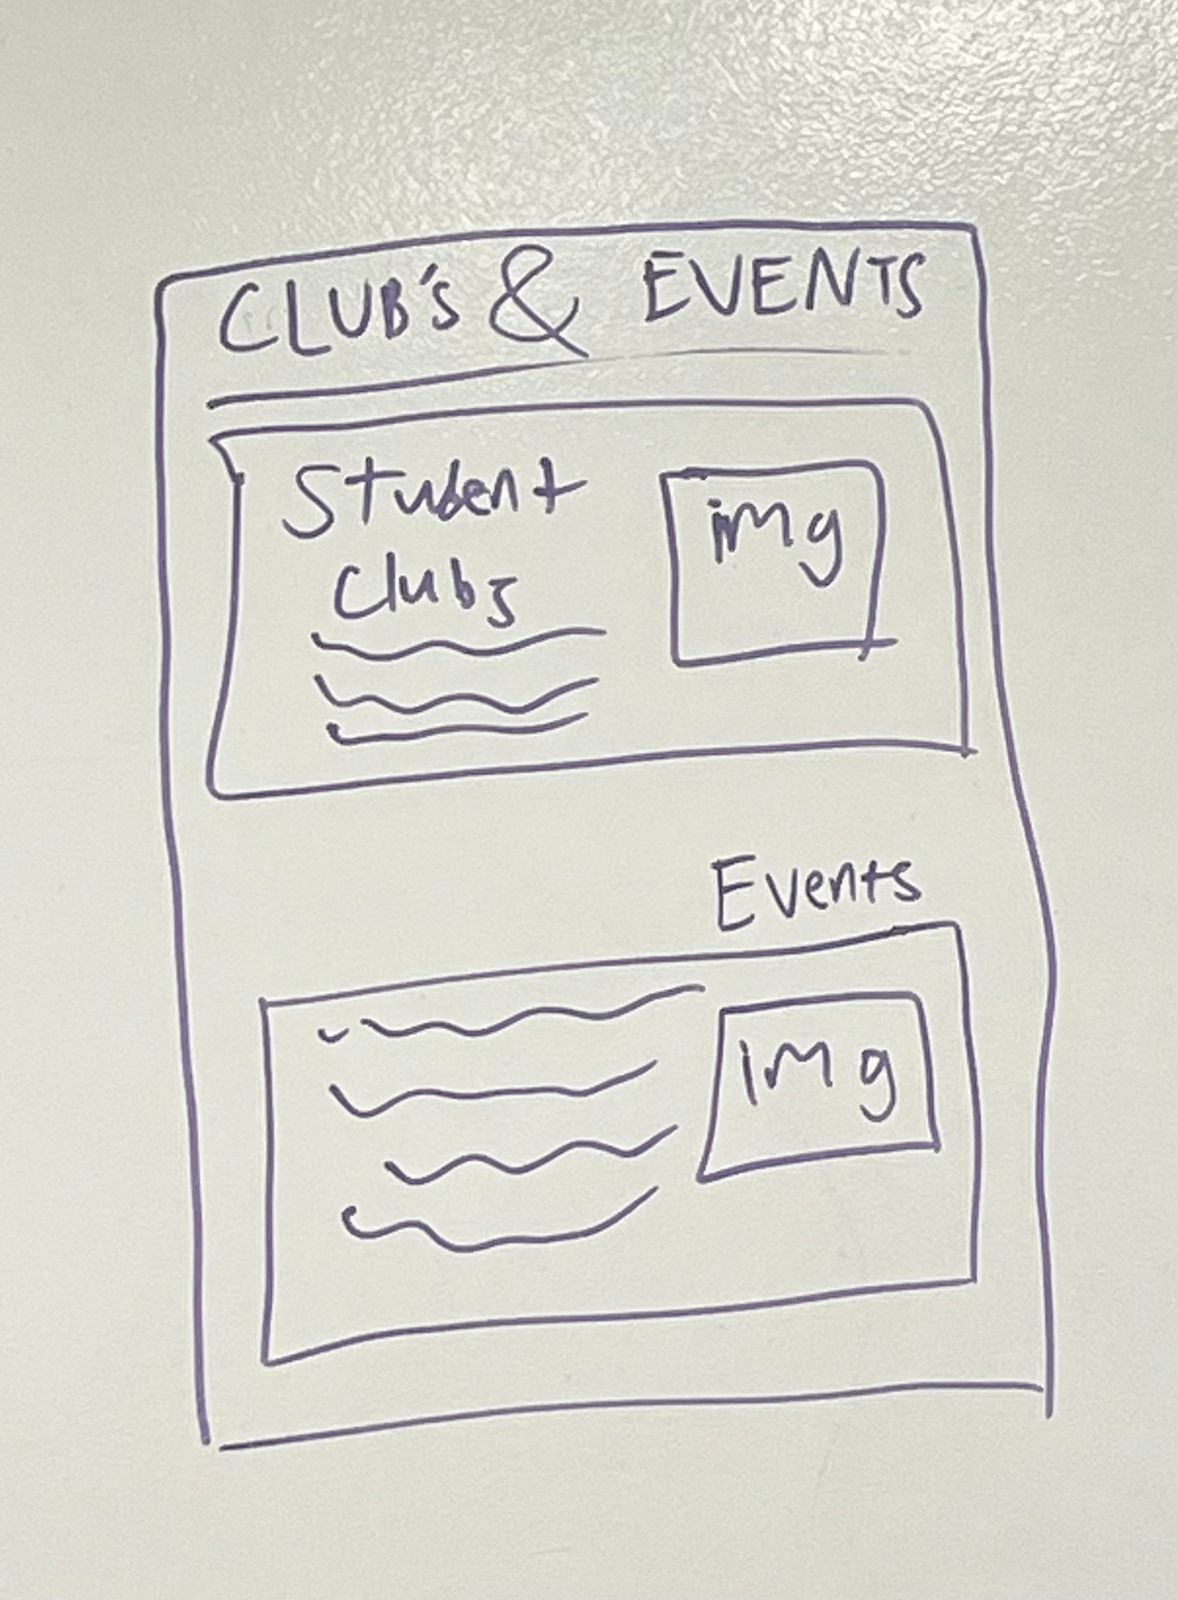 CLUB'S & EVENTS
Student
Clubs
img
Events
img